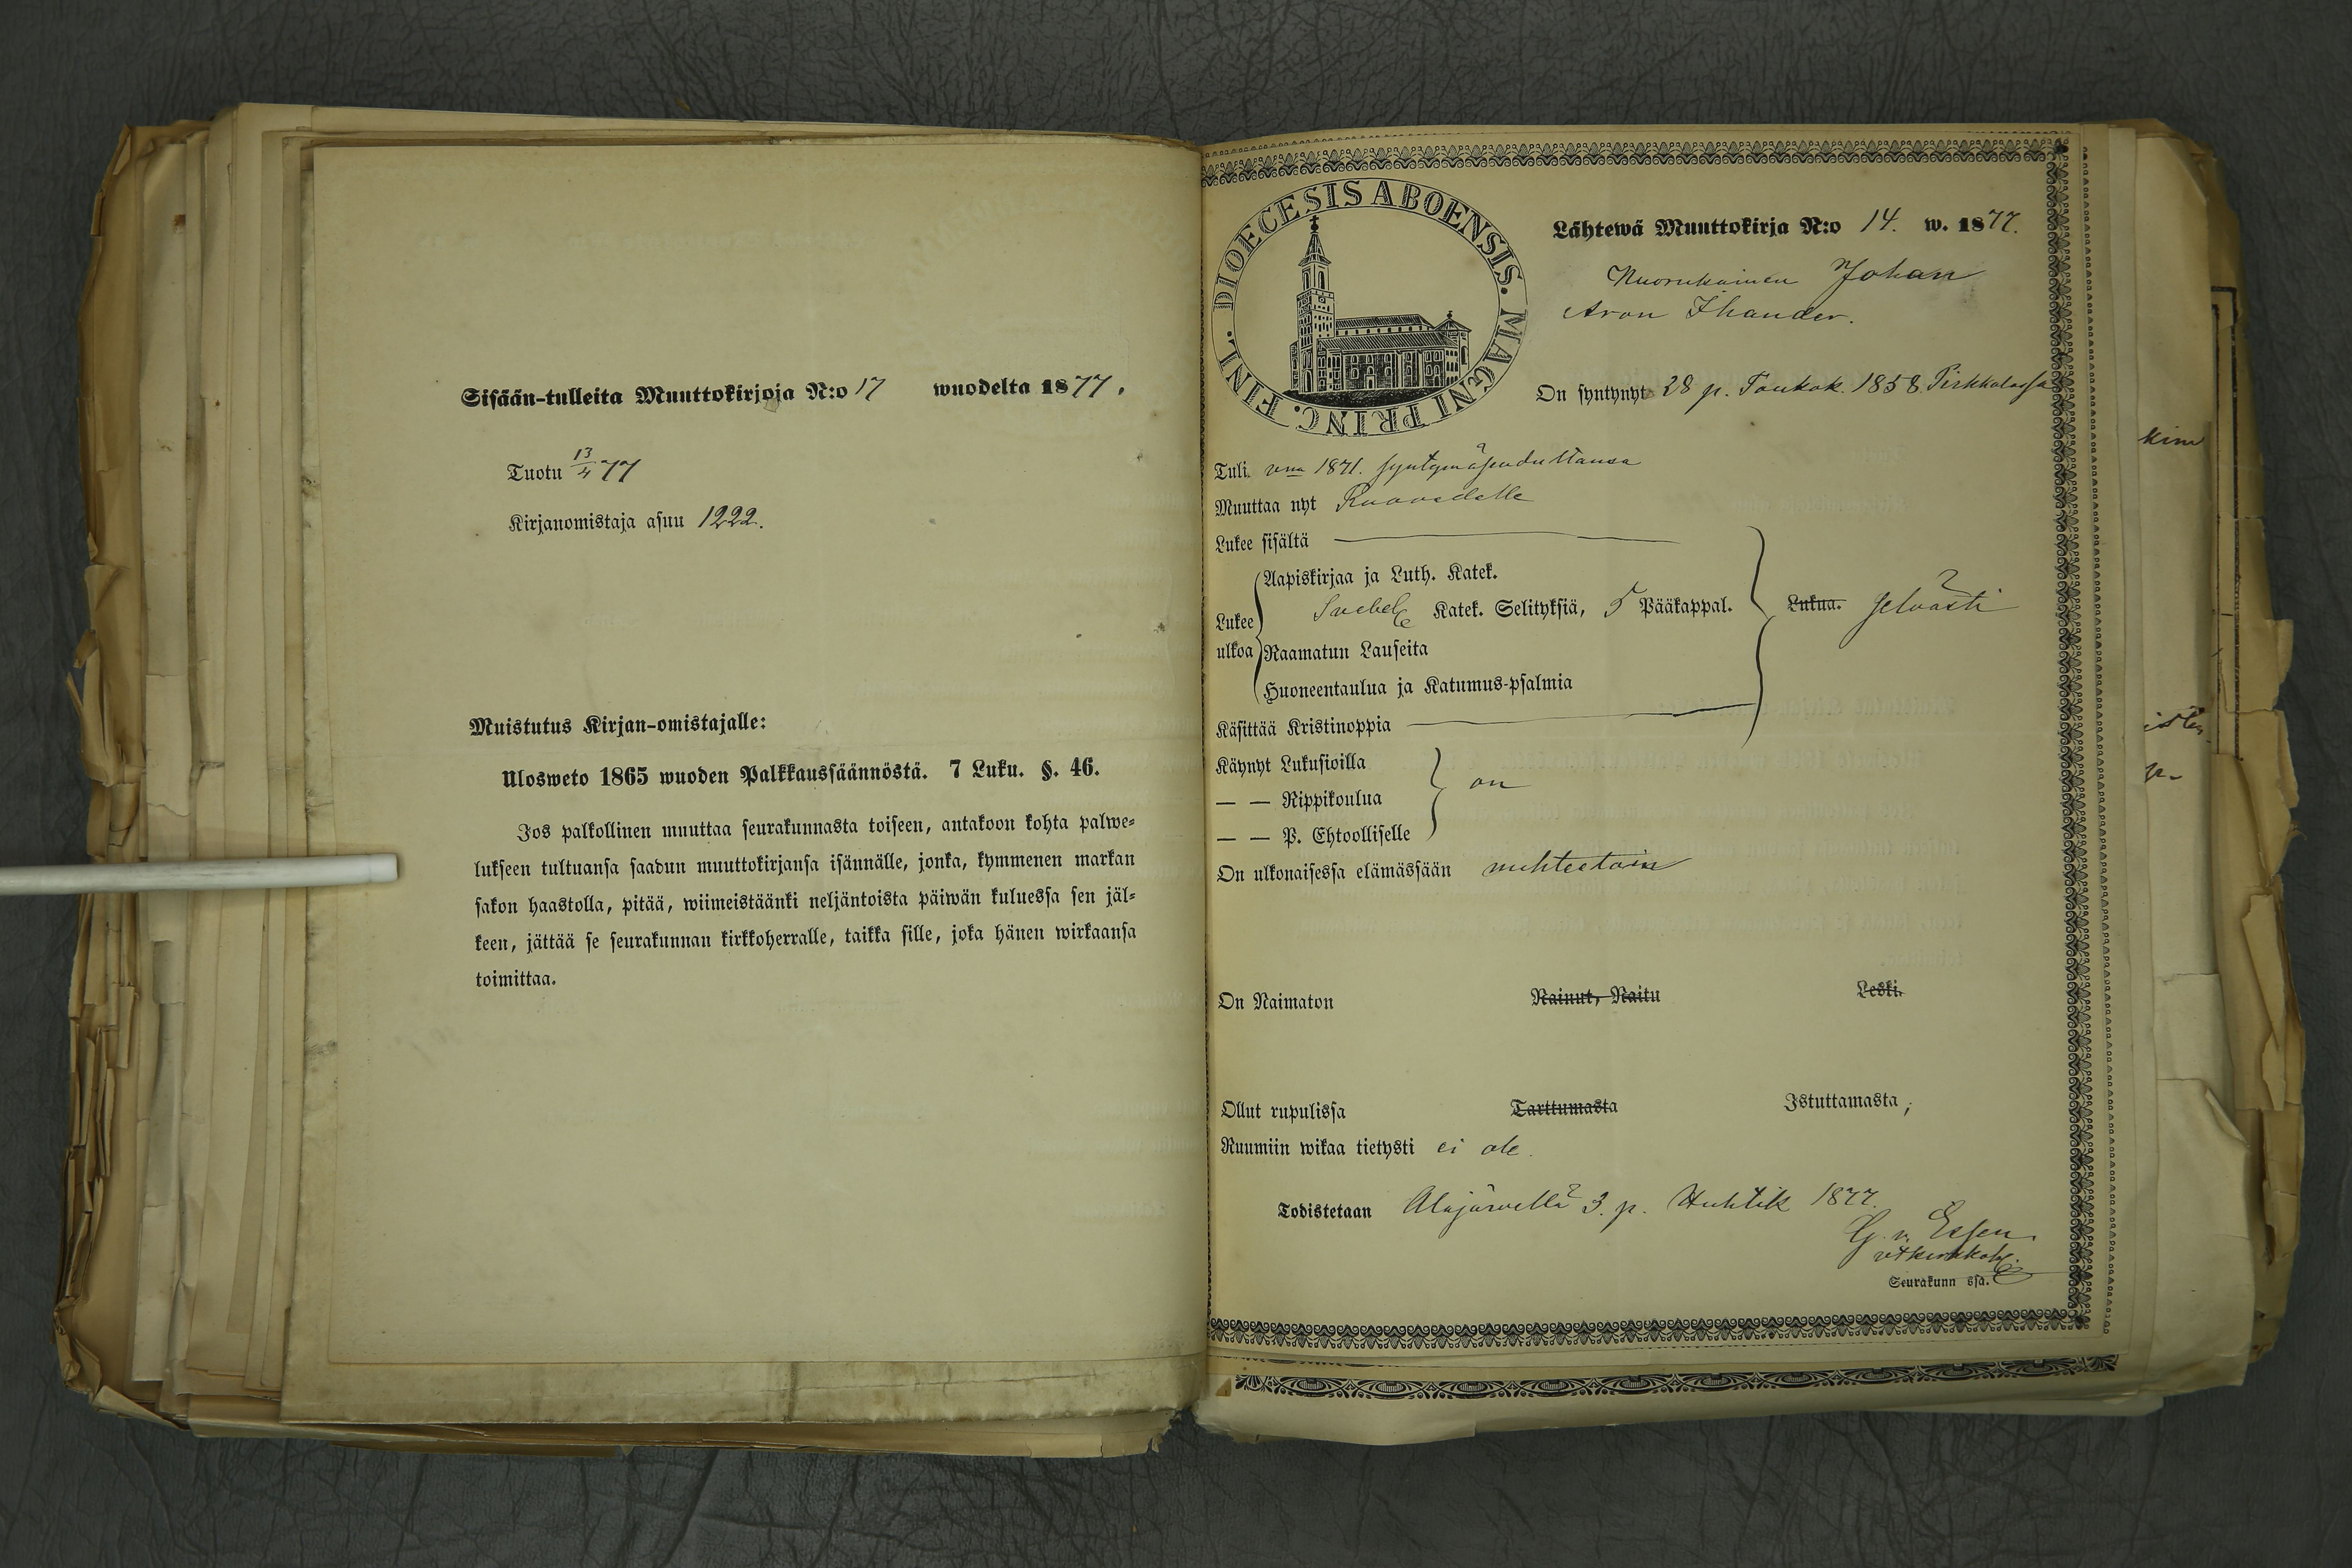 Sisään-tulleita Muuttokirjoja N:o 17 wuodelta 1877.
Tuotu 13/4 77
Kirjanomistaja asuu 1222.
Muistutus Kirjan-omistajalle:
Ulosweto 1865 wuoden Palkkaussäännöstä. 7 Luku. §. 46.
Jos palkollinen muuttaa seurakunnasta toiseen, antakoon kohta palwe-
lukseen tultuansa saadun muuttokirjansa isännälle, jonka, kymmenen markan
sakon haastolla, pitää, wiimeistäänki neljäntoista päiwän kuluessa sen jäl-
keen, jättää se seurakunnan kirkkoherralle, taikka sille, joka hänen wirkaansa
toimittaa.
DIOECESIS ABOENSIS. MAGNI PRINC. FINL.
Lähtewä Muuttokirja N:o 14. w. 1877.
Nuorukainen Johan
Aron Ihander.
On syntynyt 28 p. Toukok. 1858 Pirkkalassa
Tuli vna 1871. syntymäseudultansa
Muuttaa nyt Ruovedelle
Lukee sisältä
Lukee ulkoa
Aapiskirjaa ja Luth. Katek.
Svebel Katek. Selityksiä, 5 Pääkappal.
Raamatun Lauseita
Huoneentaulua ja Katumus-psalmia
Lukua. selvästi
Käsittää Kristinoppia
Käynyt Lukusioilla
— — Rippikoulua
— — P. Ehtoolliselle
on
On ulkonaisessa elämässään nuhteetoin
On Naimaton Nainut, Naitu Leski.
Ollut rupulissa Tarttumasta Istuttamasta,
Ruumiin wikaa tietysti ei ole.
Todistetaan Alajärvellä 3. p. Huhtik 1877.
G. v. Essen.
Seurakunn ssa.
kim